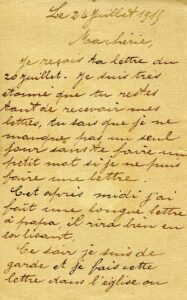 Le 24 Juillet 1915
Ma chérie,
Je reçois ta lettre du
20 juillet. Je suis très
étonné que tu restes
tant de recevoir mes
lettres, tu sais que je ne
manque pas un seul
jour sans te faire un
petit mot si je ne puis
faire une lettre.
Cet après midi j'ai
fait une longue lettre
à papa, il rira bien en
la lisant.
Ce soir je suis de
garde et je fais cette
lettre dans l'église ou